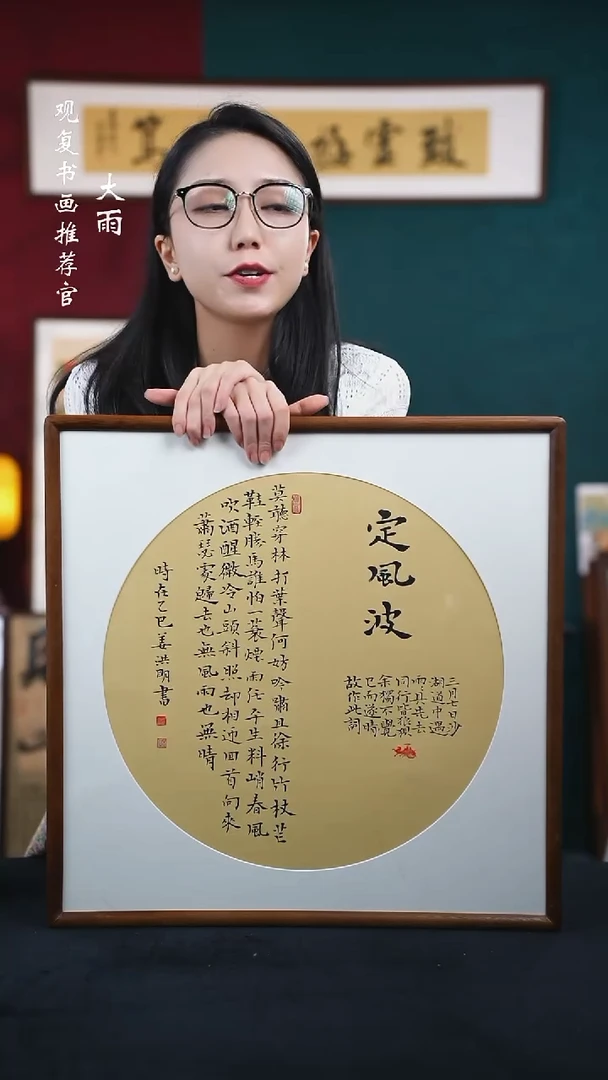 观复书画推荐官
大雨
定風波
三月七日沙
湖道中遇
雨具先去
同行皆狼狽
余獨不覺
已而遂晴
故作此詞
莫聽穿林打葉聲何妨吟嘯且徐行竹杖芒
鞋輕勝馬誰怕一蓑煙雨任平生料峭春風
吹酒醒微冷山頭斜照却相迎回首向來
蕭瑟處歸去也無風雨也無晴
時在乙巳姜洪明書